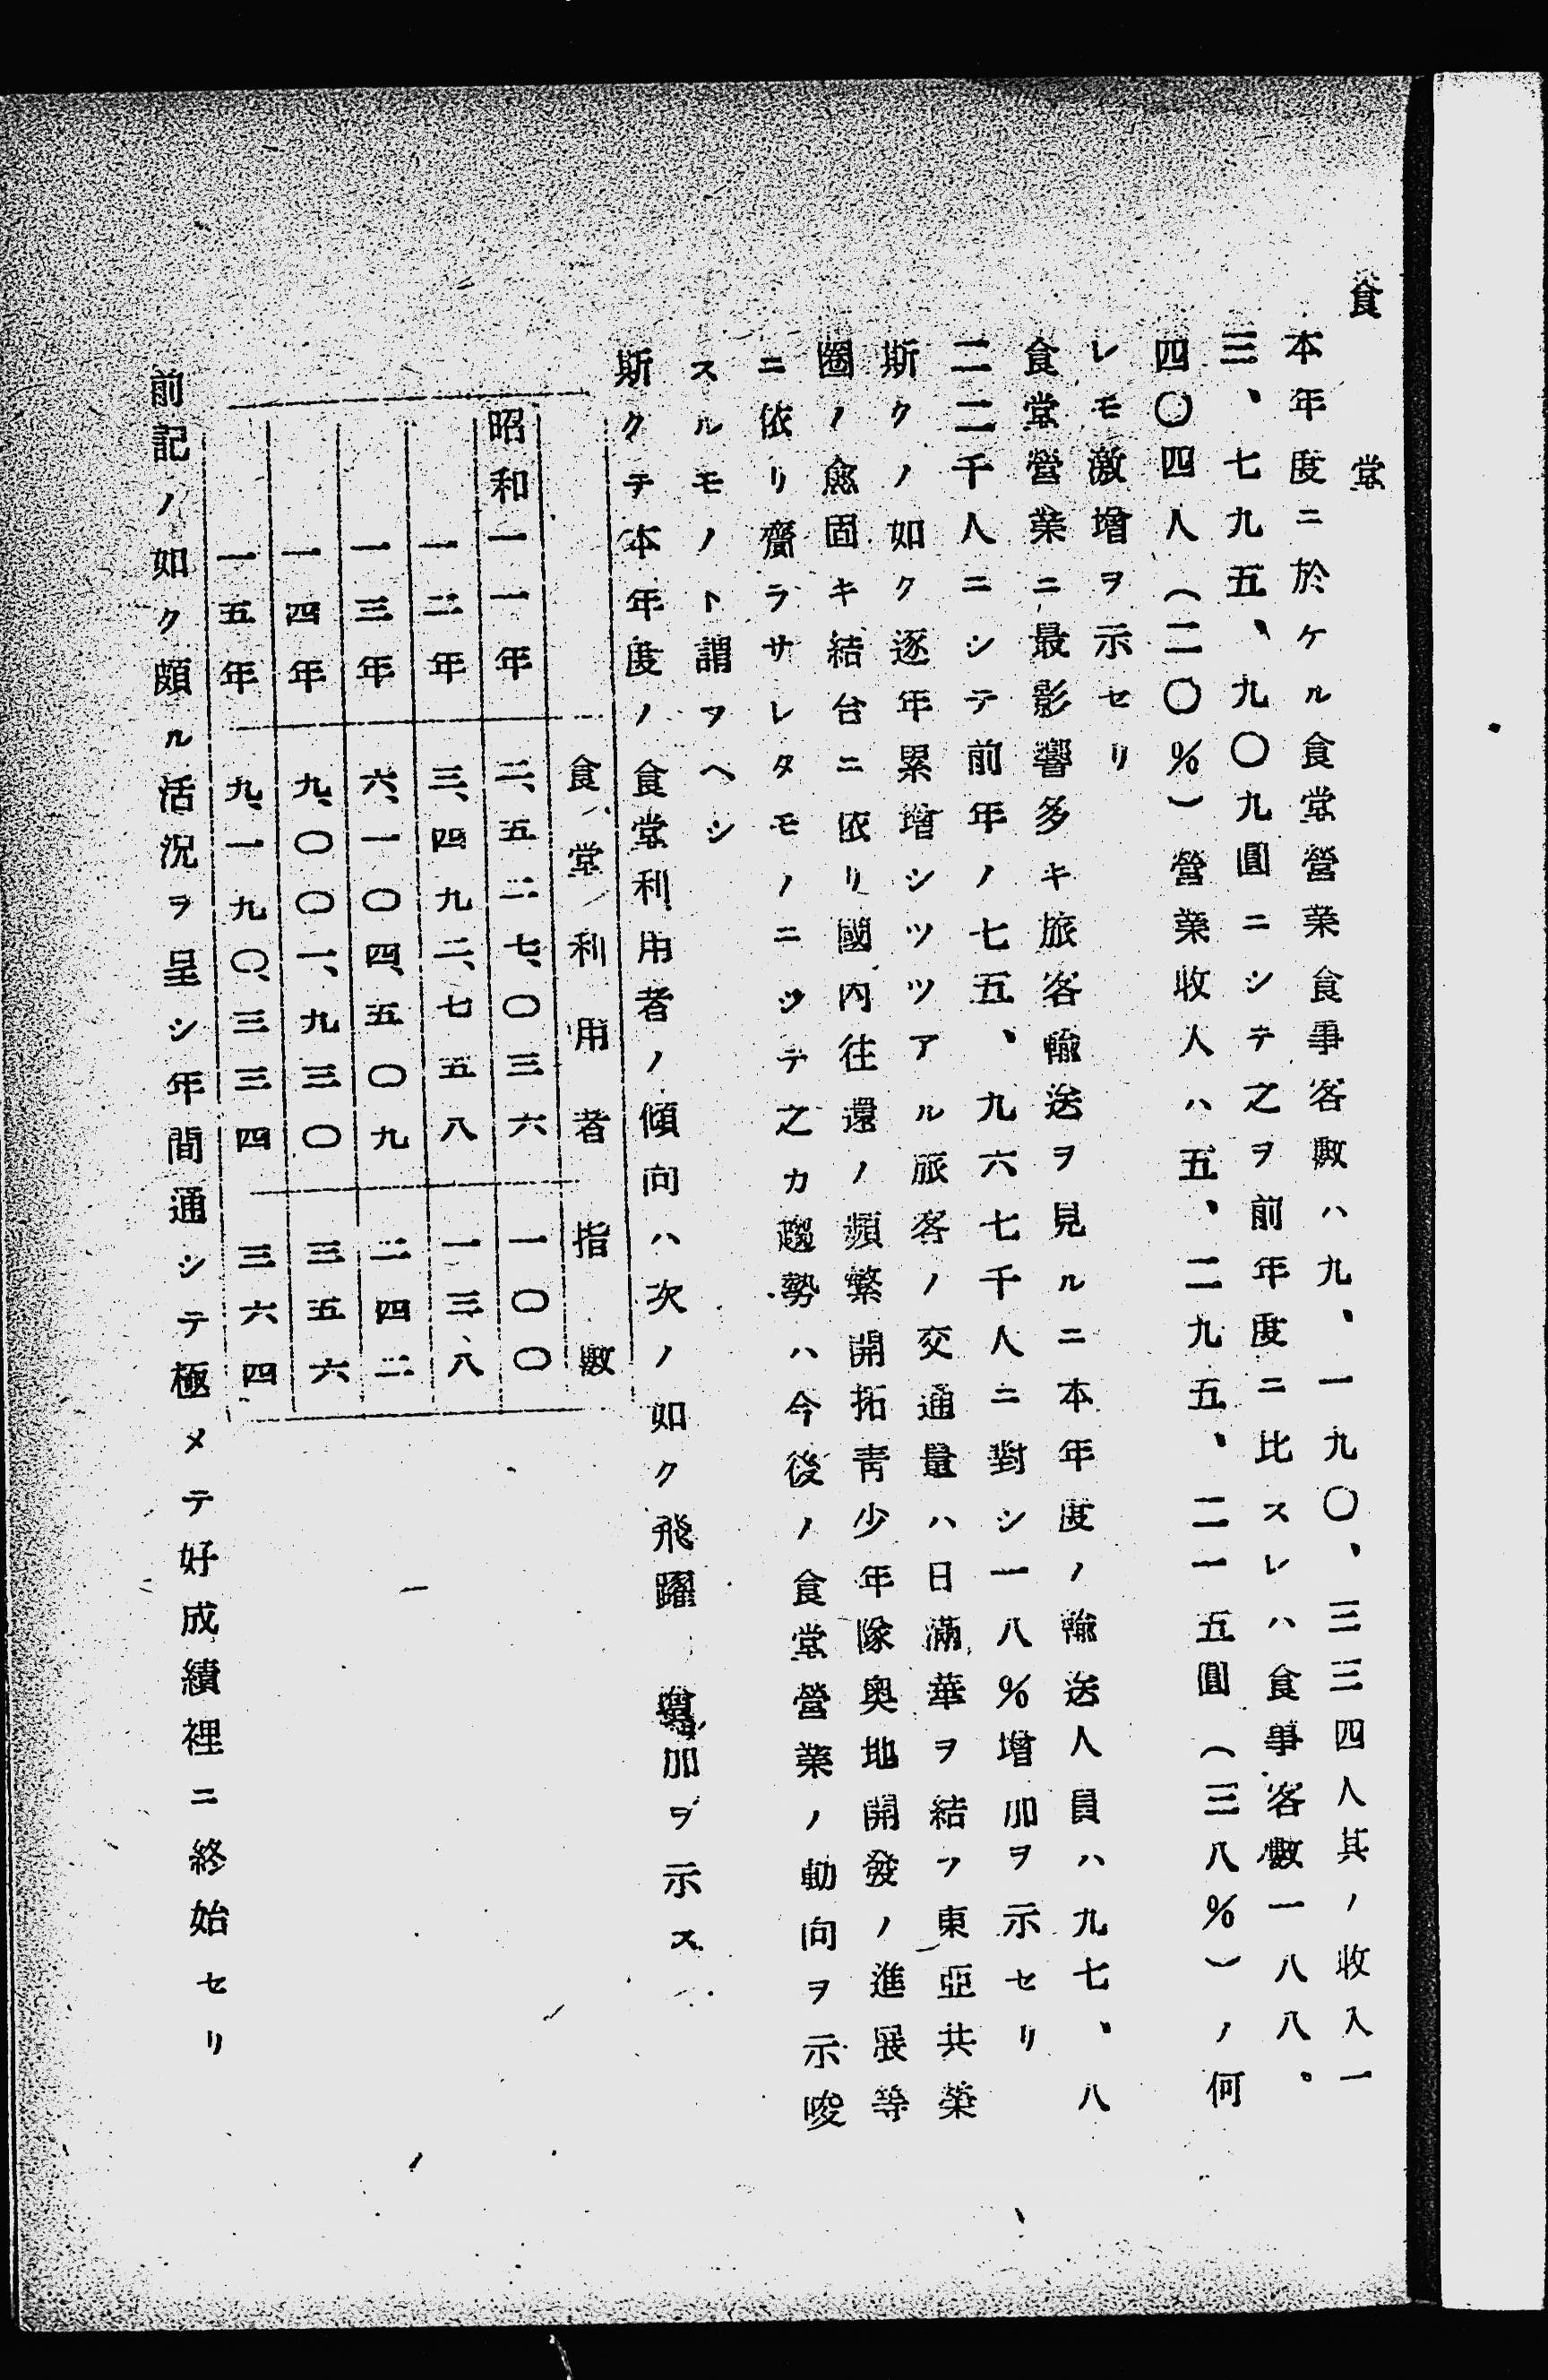 食堂
本年度ニ於ケル食堂營業食事客數ハ九、一九〇、三三四人其ノ收入一
三、七九五、九〇九圓ニシテ之ヲ前年度ニ比スレハ食事客數一八八。
四〇四人(二〇%)營業收入ハ五、二九五、二一五圓(三八%)ノ何
レモ激增ヲ示セリ
食堂營業ニ最影響多キ旅客輸送ヲ見ルニ本年度ノ輸送人員ハ九七、八
二二千人ニシテ前年ノ七五、九六七千人ニ對シ一八%增加ヲ示セリ
斯クノ如ク逐年累增シツツアル旅客ノ交通量ハ日滿華ヲ結フ東亞共榮
圈ノ愈固キ結合ニ依リ國內往還ノ頻繁開拓靑少年隊奧地開發ノ進展等
ニ依リ齎ラサレタモノニシテ之カ趨勢ハ今後ノ食堂營業ノ動向ヲ示唆
スルモノト謂フヘシ
斯クテ本年度ノ食堂利用者ノ傾向ハ次ノ如ク飛躍增加ヲ示ス
食堂利用者 指數
昭和一一年 二、五二七、〇三六 一〇〇
一二年 三、四九二、七五八 一三八
一三年 六、一〇四、五〇九 二四二
一四年 九、〇〇一、九三〇 三五六
一五年 九、一九〇、三三四 三六四
前記ノ如ク頗ル活況ヲ呈シ年間通シテ極メテ好成績裡ニ終始セリ